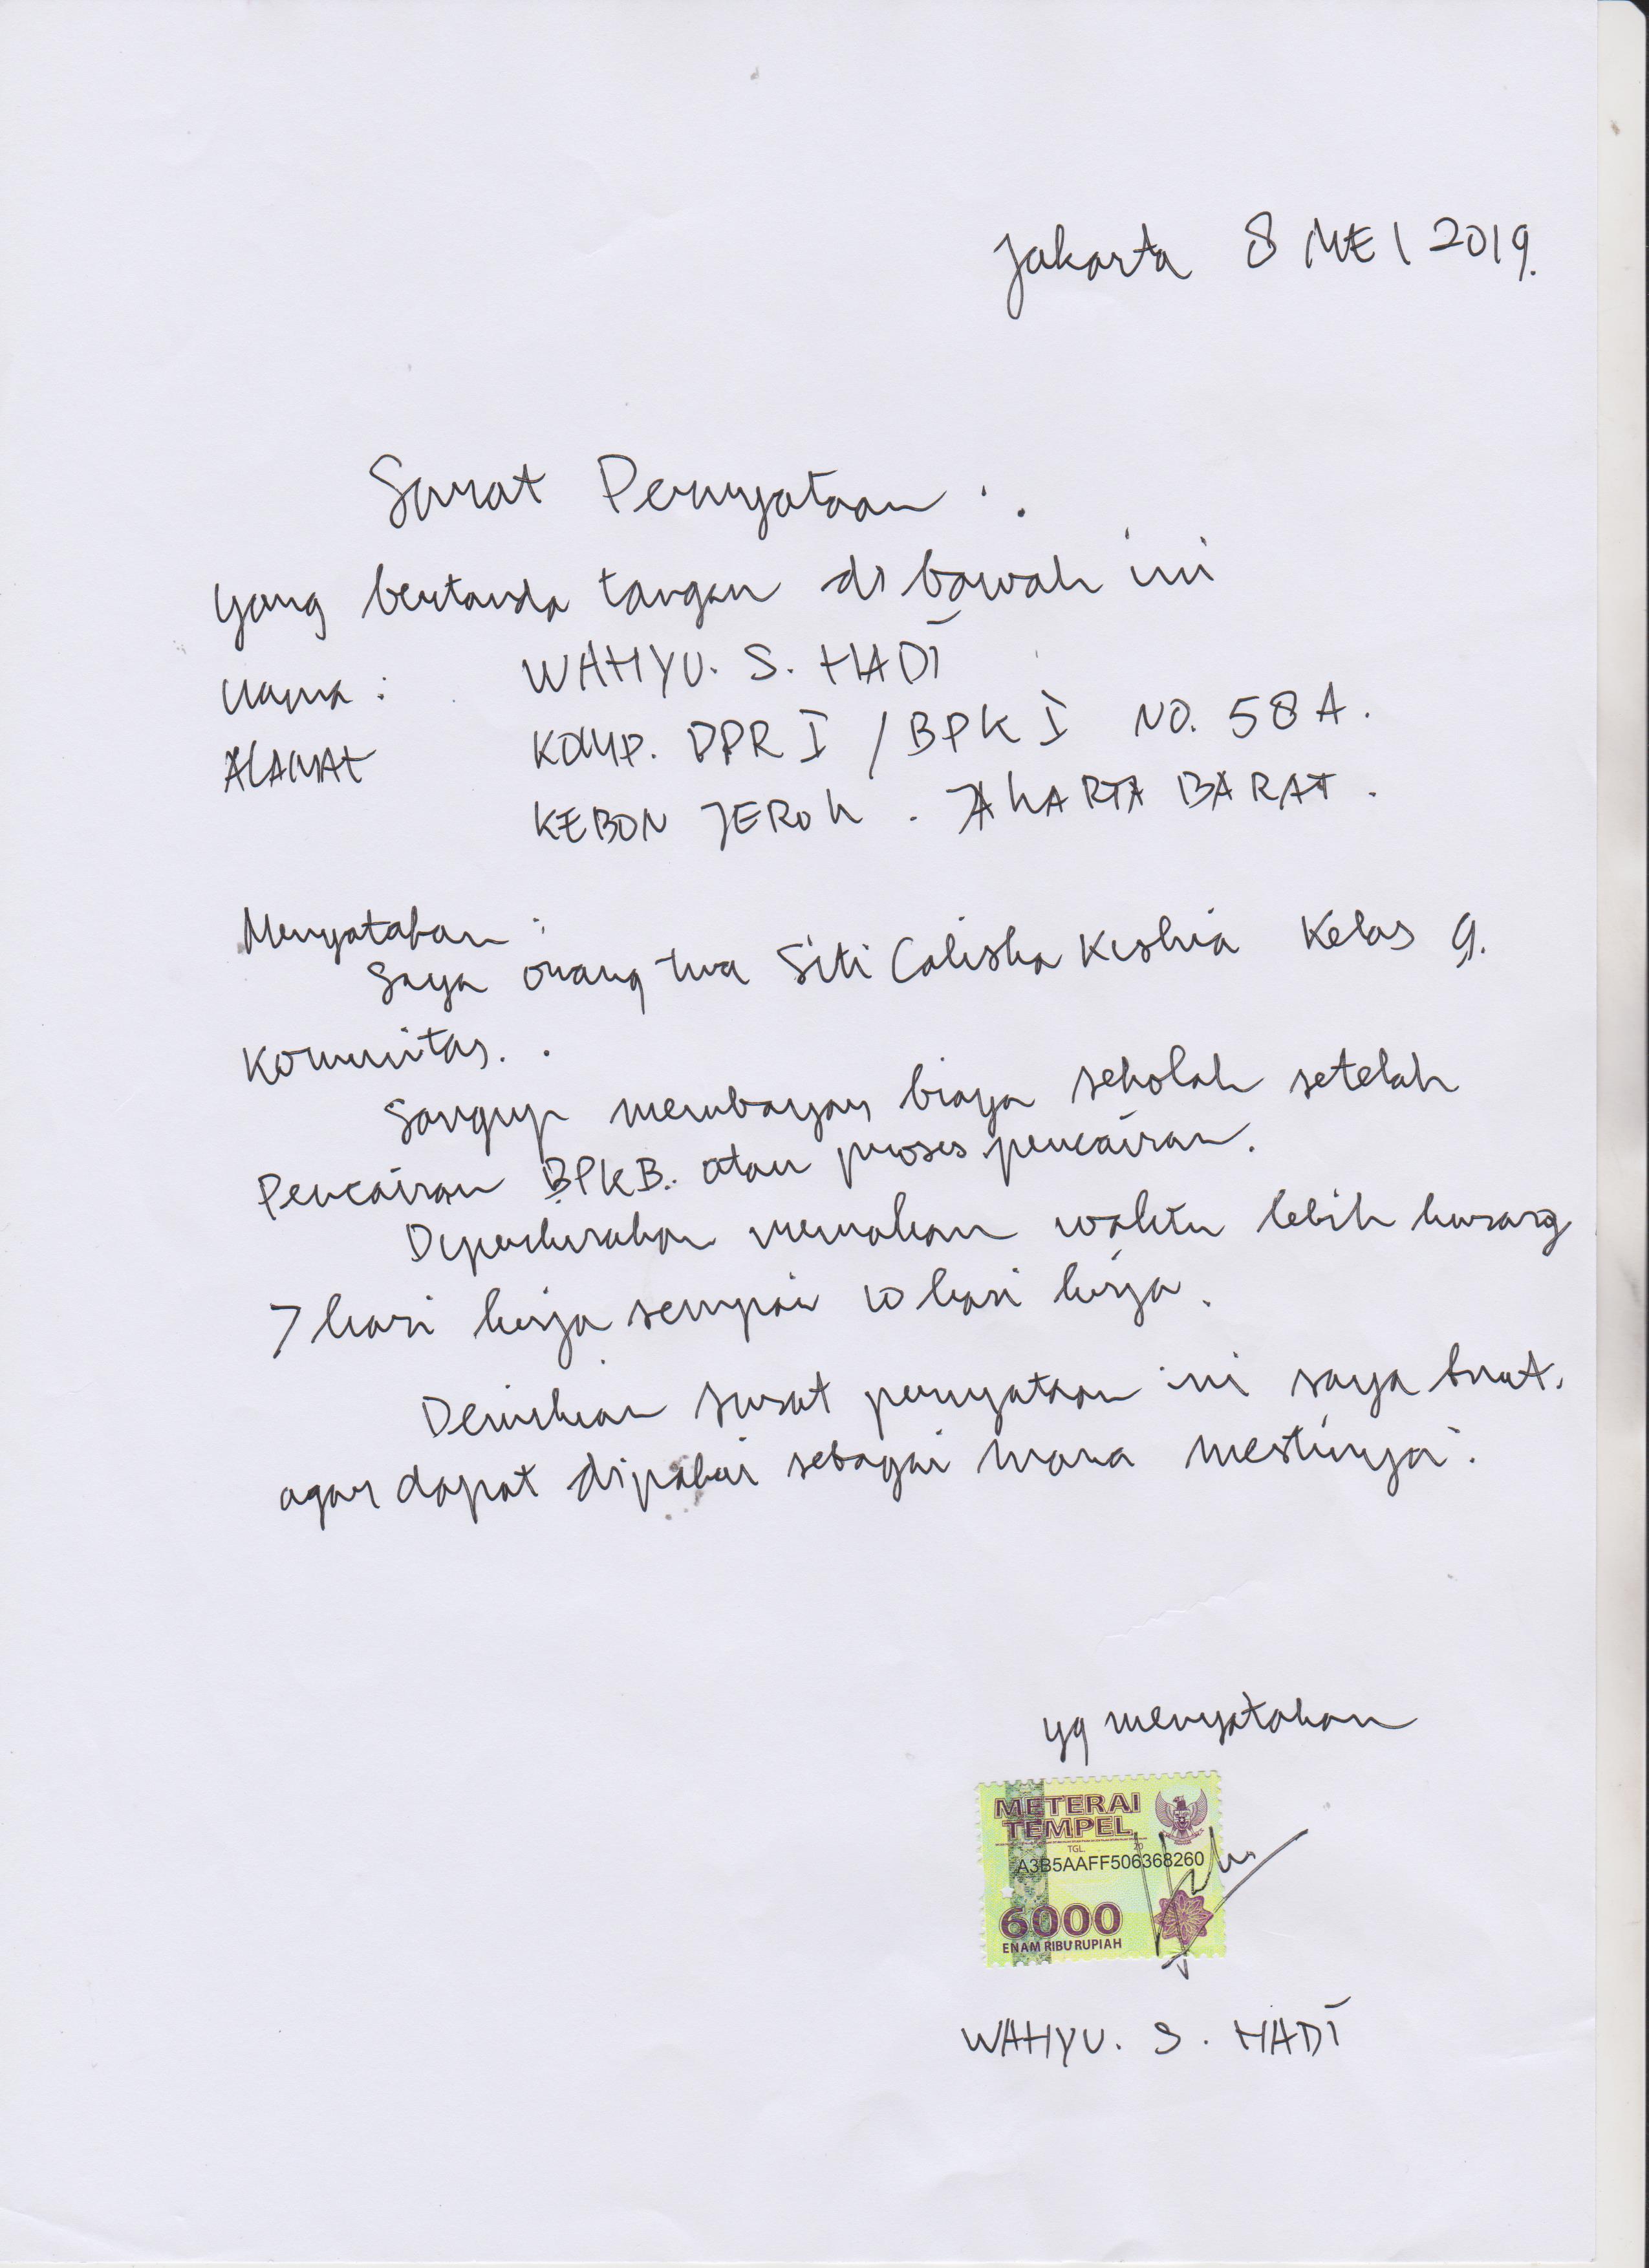 Jakarta 8 MEI 2019.
Surat Pernyataan :.
yang bertanda tangan di bawah ini
Nama : WAHYU. S. HADI
ALAMAT KOMP. DPR I / BPK I NO. 58 A.
KEBON JERUK . JAKARTA BARAT .
Menyatakan :
Saya orang tua Siti Calisha Keshia Kelas 9.
Komunitas. .
Sanggup membayar biaya sekolah setelah
Pencairan BPKB. atau proses pencairan.
Diperkirakan memakan waktu lebih kurang
7 hari kerja sampai 10 hari kerja.
Demikian surat pernyataan ini saya buat.
agar dapat dipakai sebagai mana mestinya.
yg menyatakan
METERAI
TEMPEL
TGL. 20
A3B5AAFF506368260
6000
ENAM RIBU RUPIAH
WAHYU. S. HADI